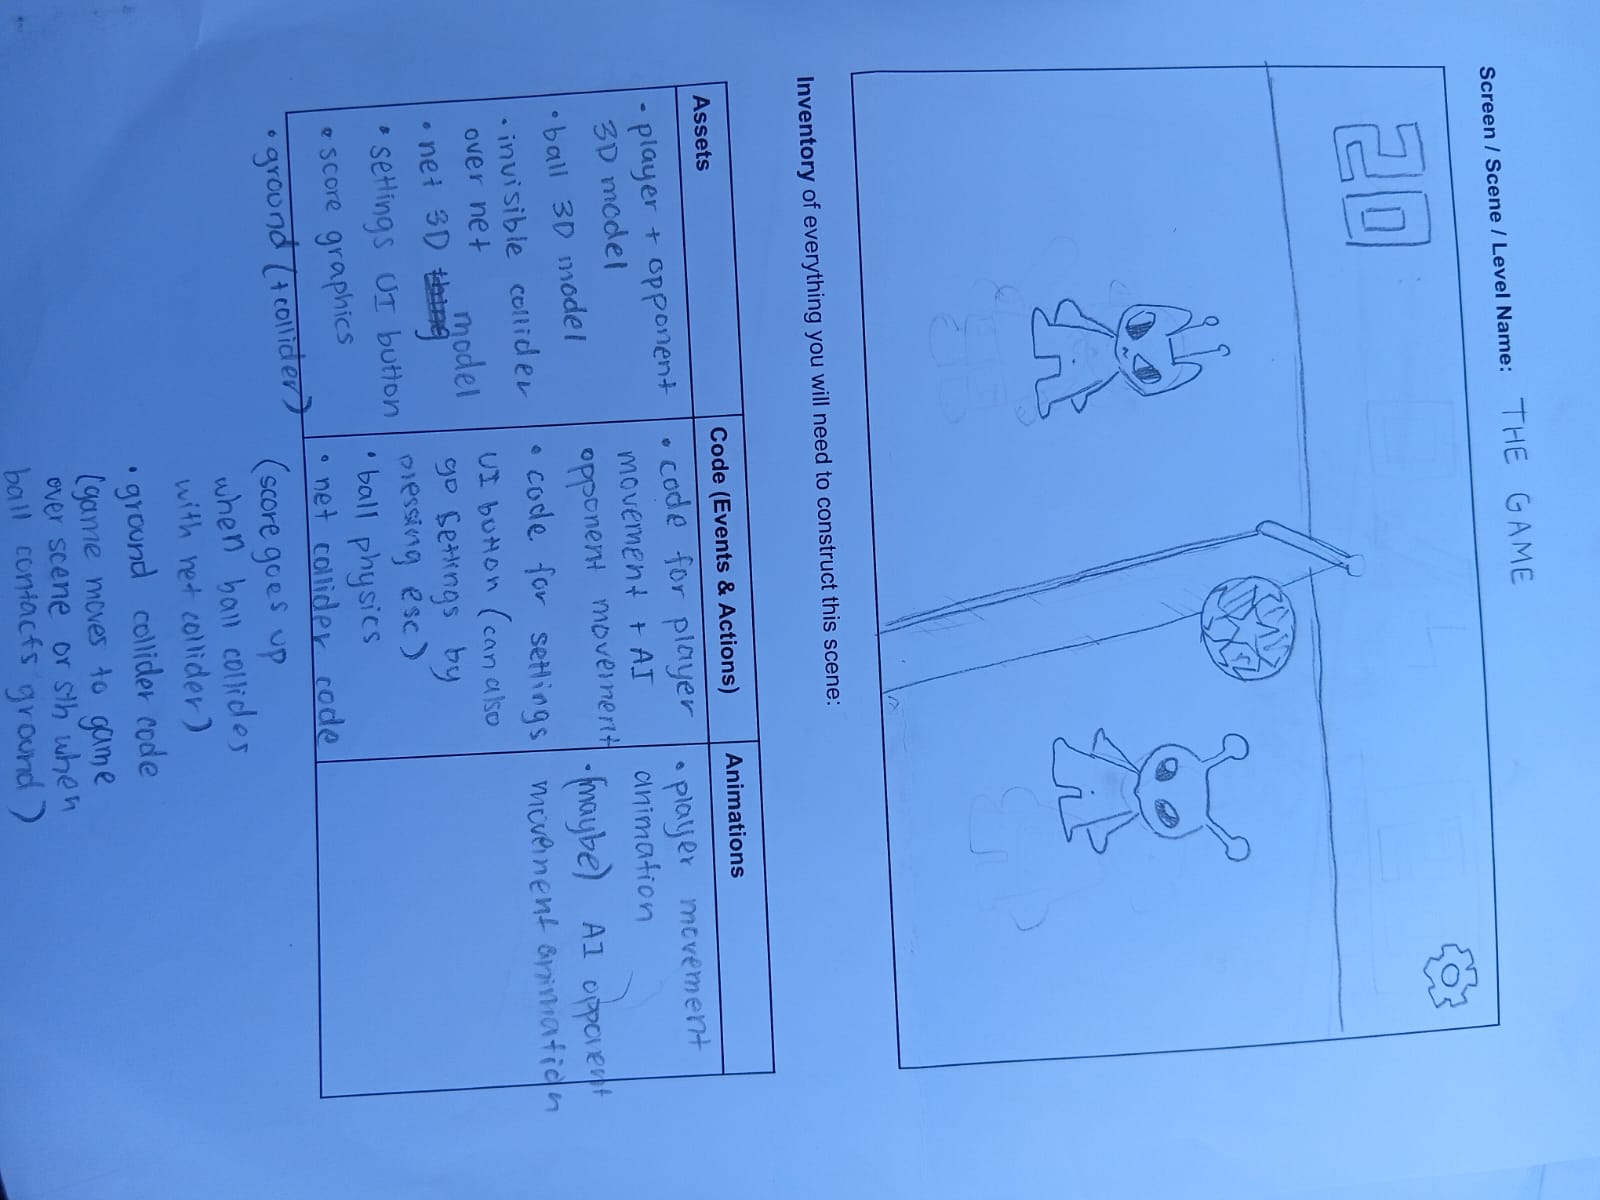 Screen / Scene / Level Name: THE GAME
20
Inventory of everything you will need to construct this scene:
Assets
• player + opponent
3D model
• ball 3D model
• invisible collider
over net
• net 3D thing model
• settings UI button
• score graphics
• ground (+collider)
Code (Events & Actions)
• code for player
movement + AI
opponent movement
• code for settings
UI button (can also
go settings by
pressing esc)
• ball physics
• net collider code
(score goes up
when ball collides
with net collider)
• ground collider code
(game moves to game
over scene or sth when
ball contacts ground)
Animations
• player movement
animation
• (maybe) AI opponent
movement animation